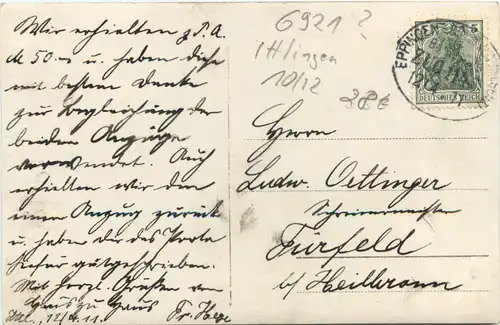 Wir erhielten z. P. A.
M 50.– u. haben diese
mit bestem Danke
zur Begleichung der
beiden Anzüge
verwendet. Auch
erhielten wir den
einen Anzug zurück
u. haben Dir das Porto
hiefür gutgeschrieben.
Mit herzl. Grüßen von
Haus zu Haus
12/4.11. Fr.
6921 ?
Ittlingen
10/12
EPPINGEN
ZUG
5
DEUTSCHES REICH
Herrn
Ludw. Oettinger
Schreinermeister
Fürfeld
b/ Heilbronn